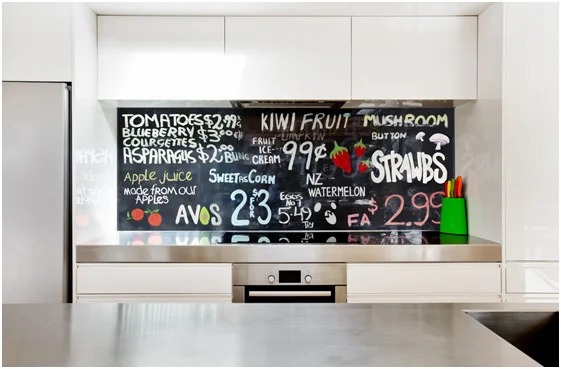 TOMATOES $2.99
BLUEBERRY $3
COURGETTES
ASPARAGUS $2
Apple juice
made from our
Apples
AVOS
KIWI FRUIT
PUMPKIN
FRUIT
ICE-
CREAM
99¢
SWEET AS CORN
2 FOR $3
EGGS
No 7
5.49
Try
NZ
WATERMELON
MUSHROOM
BUTTON
STRAWBS
FA $2.99